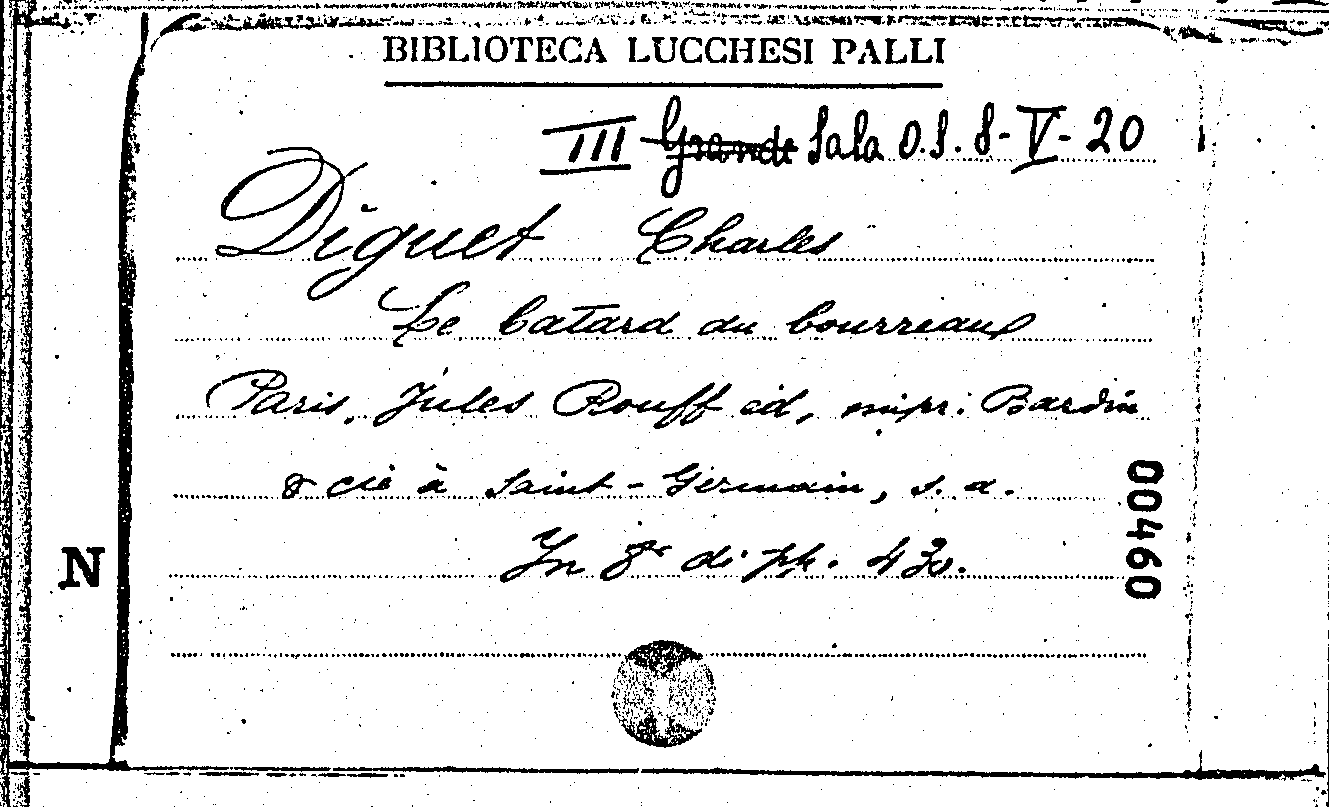 BIBLIOTECA LUCCHESI PALLI
III Grande Sala O.S. 8-V-20
Diguet Charles
Le batard du bourreau
Paris, Jules Rouff ed, impr. Bardin
& cie à Saint-Germain, s. d.
In 8° di pp. 430.
N
00460